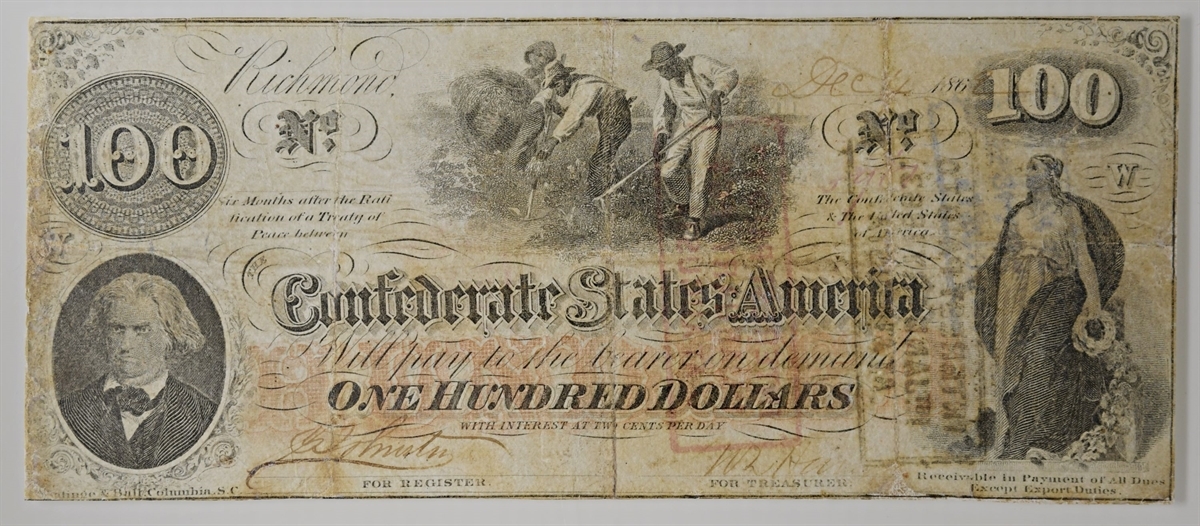 Richmond,
Dec
186
100
No
No
100
W
Six Months after the Rati
fication of a Treaty of
Peace between
The Confederate States
& The United States
of America
THE
Confederate States America
Will pay to the bearer on demand
ONE HUNDRED DOLLARS
WITH INTEREST AT TWO CENTS PER DAY
FOR REGISTER.
FOR TREASURER.
& Ball, Columbia, S.C.
Receivable in Payment of All Dues
Except Export Duties.